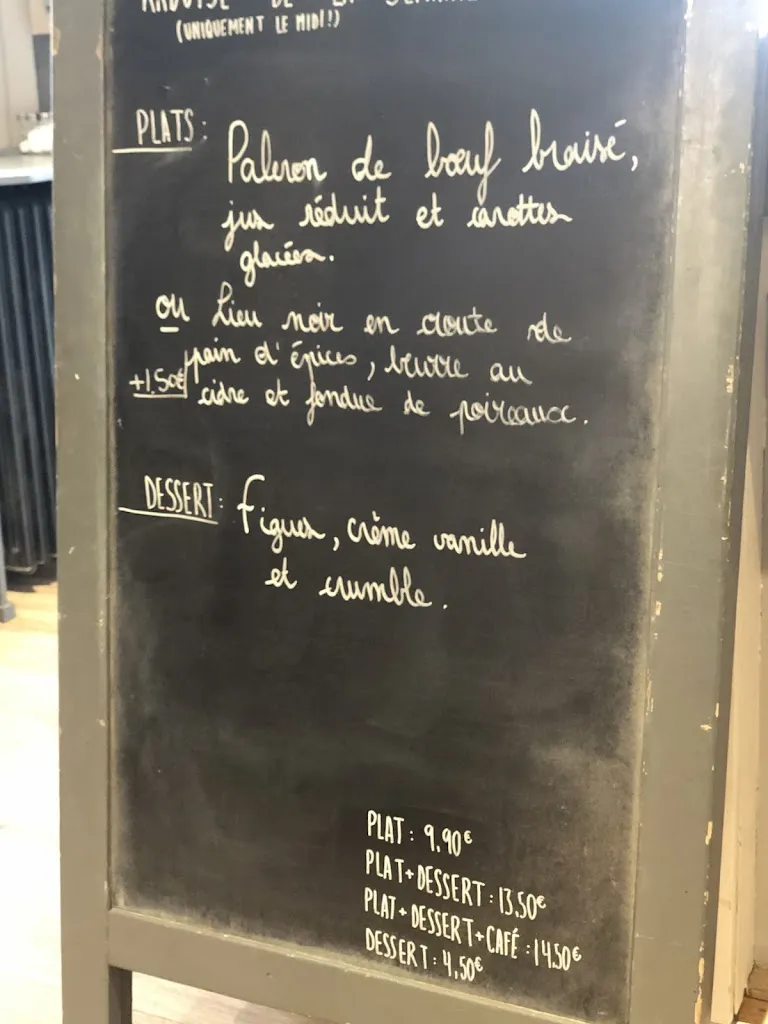 ARDOISE DE LA SEMAINE
(UNIQUEMENT LE MIDI!)
PLATS: Paleron de bœuf braisé,
jus réduit et carottes
glacées.
ou Lieu noir en croute de
pain d'épices, beurre au
+1.50€ cidre et fondue de poireaux.
DESSERT: Figues, crème vanille
et crumble.
PLAT: 9.90€
PLAT+DESSERT: 13.50€
PLAT+DESSERT+CAFÉ: 14.50€
DESSERT: 4,50€